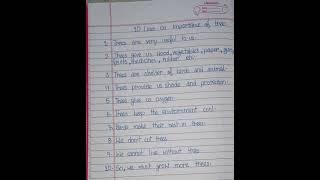 10 Lines on Importance of tree
1. Trees are very useful to us.
2. Trees give us food, vegetables, paper, gum,
fruits, medicines, rubber etc.
3. Trees are shelter of birds and animal.
4. Trees provide us shade and protection.
5. Trees give us oxygen
6. Trees keep the environment cool.
7. Birds make their nest in trees.
8. We don't cut trees
9. We cannot live without trees
10. So, we must grow more trees.